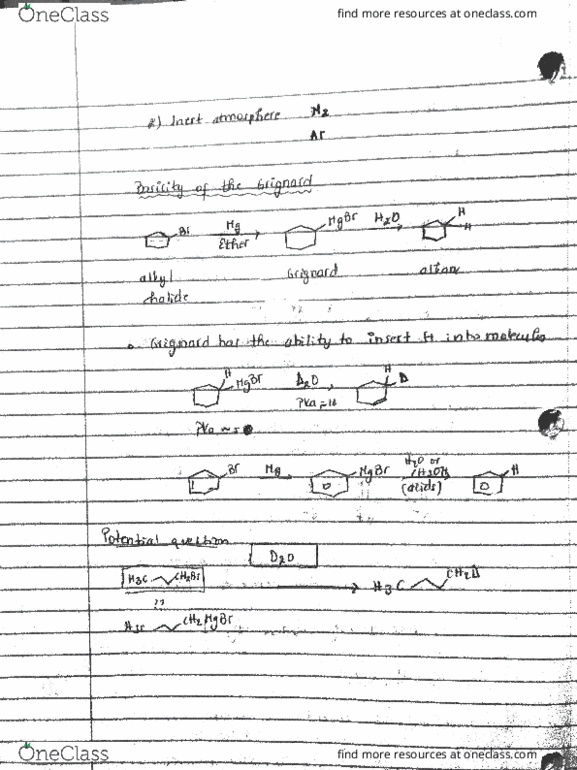 OneClass find more resources at oneclass.com
2) Inert atmosphere N2
Ar
Basicity of the Grignard
Br Mg Ether MgBr H2O H H
alkyl halide Grignard alkane
Grignard has the ability to insert H into molecules
H MgBr D2O H D
PKa
Br Mg MgBr H2O or CH3OH H
(acids)
Potential question
D2O
H3C CH2Br H3C CH2D
??
CH2MgBr
OneClass find more resources at oneclass.com